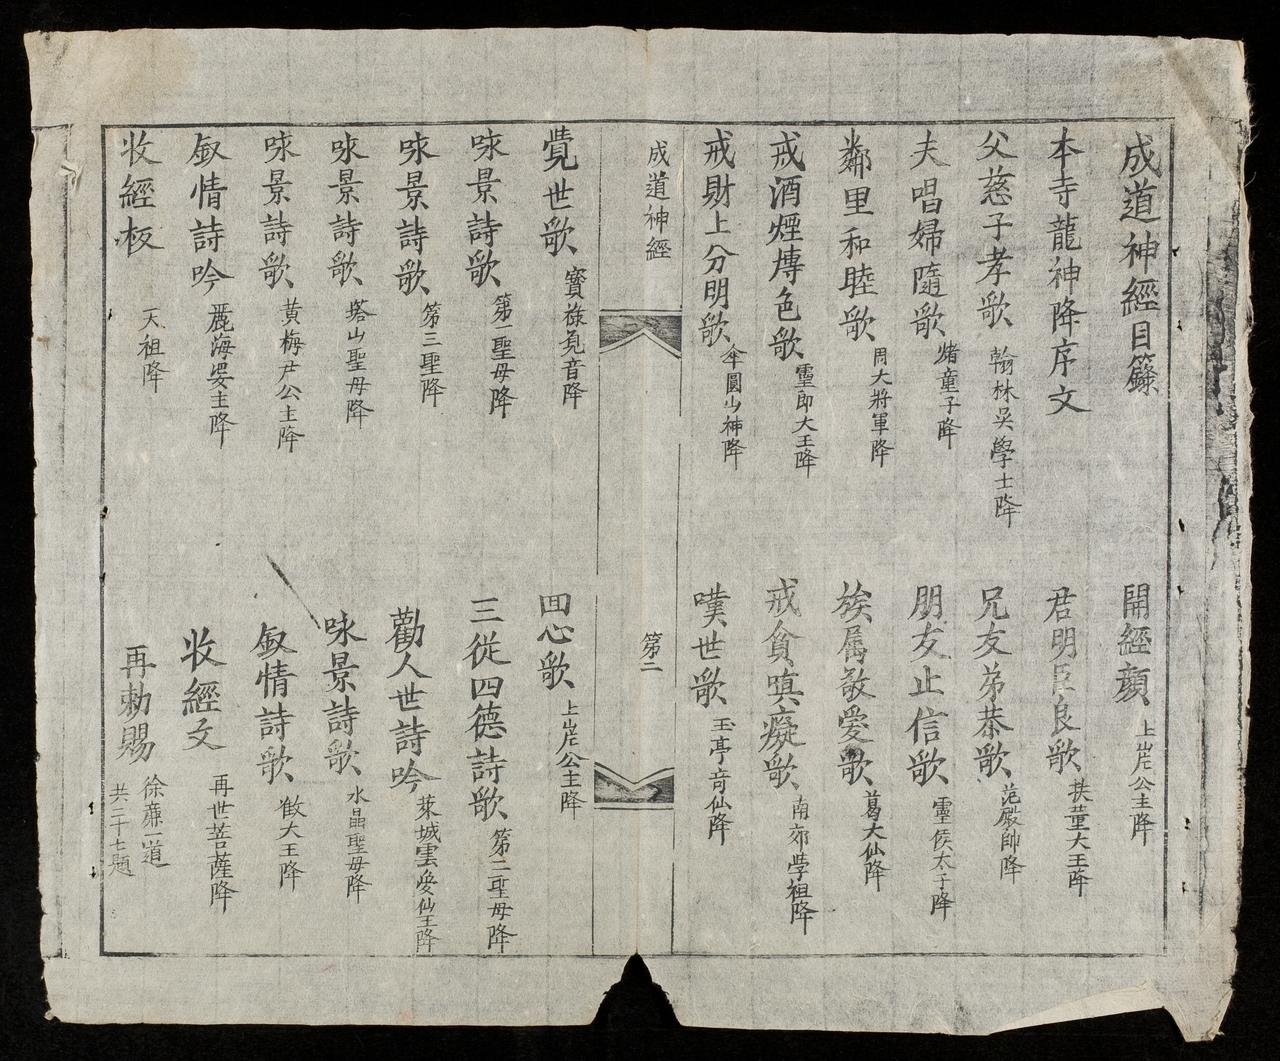 成道神經目籙
開經顔 上岸公主降
本寺龍神降序文
君明臣良歌 扶董大王降
父慈子孝歌 翰林吳學士降
兄友弟恭歌 范殿帥降
夫唱婦隨歌 童子降
朋友止信歌 靈侯太子降
鄰里和睦歌 周大將軍降
族属敬愛歌 葛大仙降
戒酒煙慱色歌 靈郎大王降
戒貪嗔癡歌 南郊學祖降
戒財上分明歌 傘圓山神降
嘆世歌 玉亭奇仙降
成道神經
第二
覺世歌 寳祿覓音降
囬心歌 上岸公主降
咏景詩歌 第一聖母降
三從四德詩歌 第二聖母降
咏景詩歌 第三聖降
勸人世詩吟 萊城雲愛仙王降
咏景詩歌 塔山聖母降
咏景詩歌 水晶聖母降
咏景詩歌 黄梅尹公主降
敘情詩歌 大王降
敘情詩吟 麗海婆主降
收經文 再世菩薩降
收經板 天祖降
再勅賜 徐一道
共二十七題